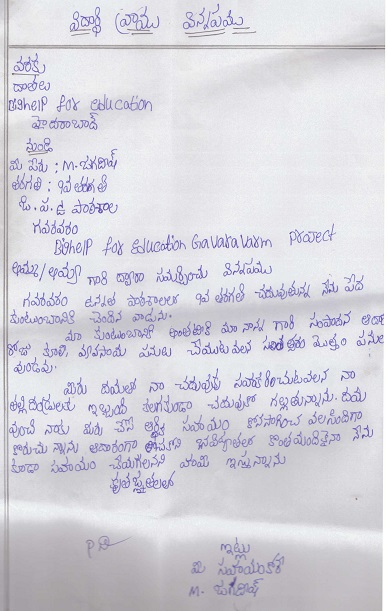 విద్యార్థి వ్రాయు విన్నపము
వరకు
దాతలు
Bighelp for education
హైదరాబాద్
నుండి
మీ పేరు : M. జగదీష్
తరగతి : 10వ తరగతి
జి. ప. ఉ పాఠశాల
గవరవరం
Bighelp for education Gavaravarm Project
అమ్మ/అయ్యా గారి ద్వారా సమర్పించు విన్నపము
గవరవరం ఉన్నత పాఠశాలలో 10వ తరగతి చదువుతున్న నేను పేద
కుటుంబానికి చెందిన వాడును.
మా కుటుంబానికి అంతటికి మా నాన్న గారి సంపాదన ఆధా
రోజు కూలి, వ్యవసాయ పనులు చేయుటవలన మొత్తం
వుండవు.
మీరు దయతో నా చదువుకు సహకరించుటవలన నా
తల్లిదండ్రులకు ఇబ్బంది కలగకుండా చదువుకో గల్గుతున్నాను. దయ
వుంచి నాకు మీరు చేసే ఆర్థిక సహాయం కొనసాగించ వలసిందిగా
కోరుచున్నాను కొంతమందికైనా నేను
కూడా సహాయం చేయగలనని హామి ఇస్తున్నాను
కృతజ్ఞతలతో
ఇట్లు
మీ సహాయంకోరే
M. జగదీష్